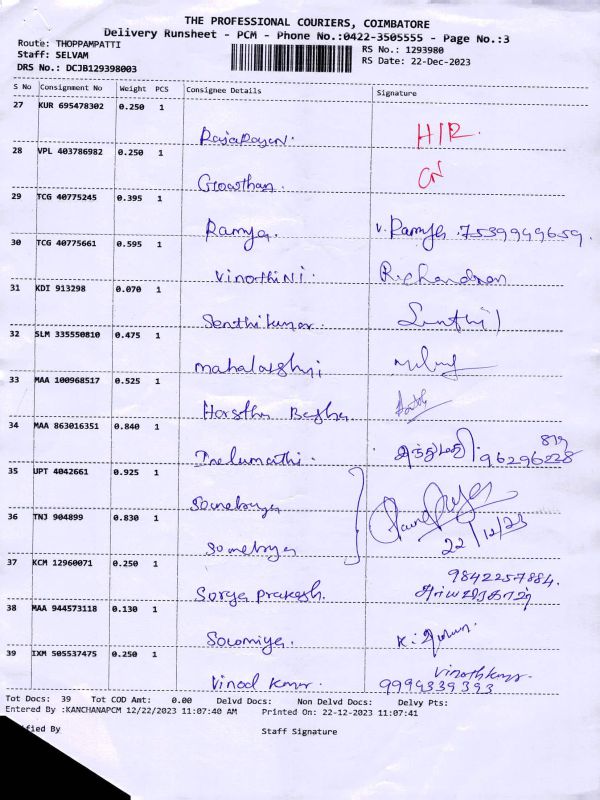 THE PROFESSIONAL COURIERS, COIMBATORE
Delivery Runsheet - PCM - Phone No.:0422-3505555 - Page No.:3
Route: THOPPAMPATTI
Staff: SELVAM
DRS No.: DCJB129398003
RS No.: 1293980
RS Date: 22-Dec-2023
S No Consignment No Weight PCS Consignee Details Signature
27 KUR 695478302 0.250 1
H/R
28 VPL 403786982 0.250 1
Gowthan.
29 TCG 40775245 0.395 1
Ramya. V. Ramya .7539949659.
30 TCG 40775661 0.595 1
Vinothini. R. chandran
31 KDI 913298 0.070 1
Senthilkumar. Senthil
32 SLM 335550810 0.475 1
mahalakshmi
33 MAA 100968517 0.525 1
34 MAA 863016351 0.840 1
819
96296228
35 UPT 4042661 0.925 1
36 TNJ 904899 0.830 1
22/12/23
37 KCM 12960071 0.250 1
9842257884.
Surya prakash. சூர்யபிரகாஷ்
38 MAA 944573118 0.130 1
Sowmiya.
39 IXM 505537475 0.250 1
Vinod kumar. Vinothkumar
9994339393
Tot Docs: 39 Tot COD Amt: 0.00 Delvd Docs: Non Delvd Docs: Delvy Pts:
Entered By :KANCHANAPCM 12/22/2023 11:07:40 AM Printed On: 22-12-2023 11:07:41
ified By Staff Signature